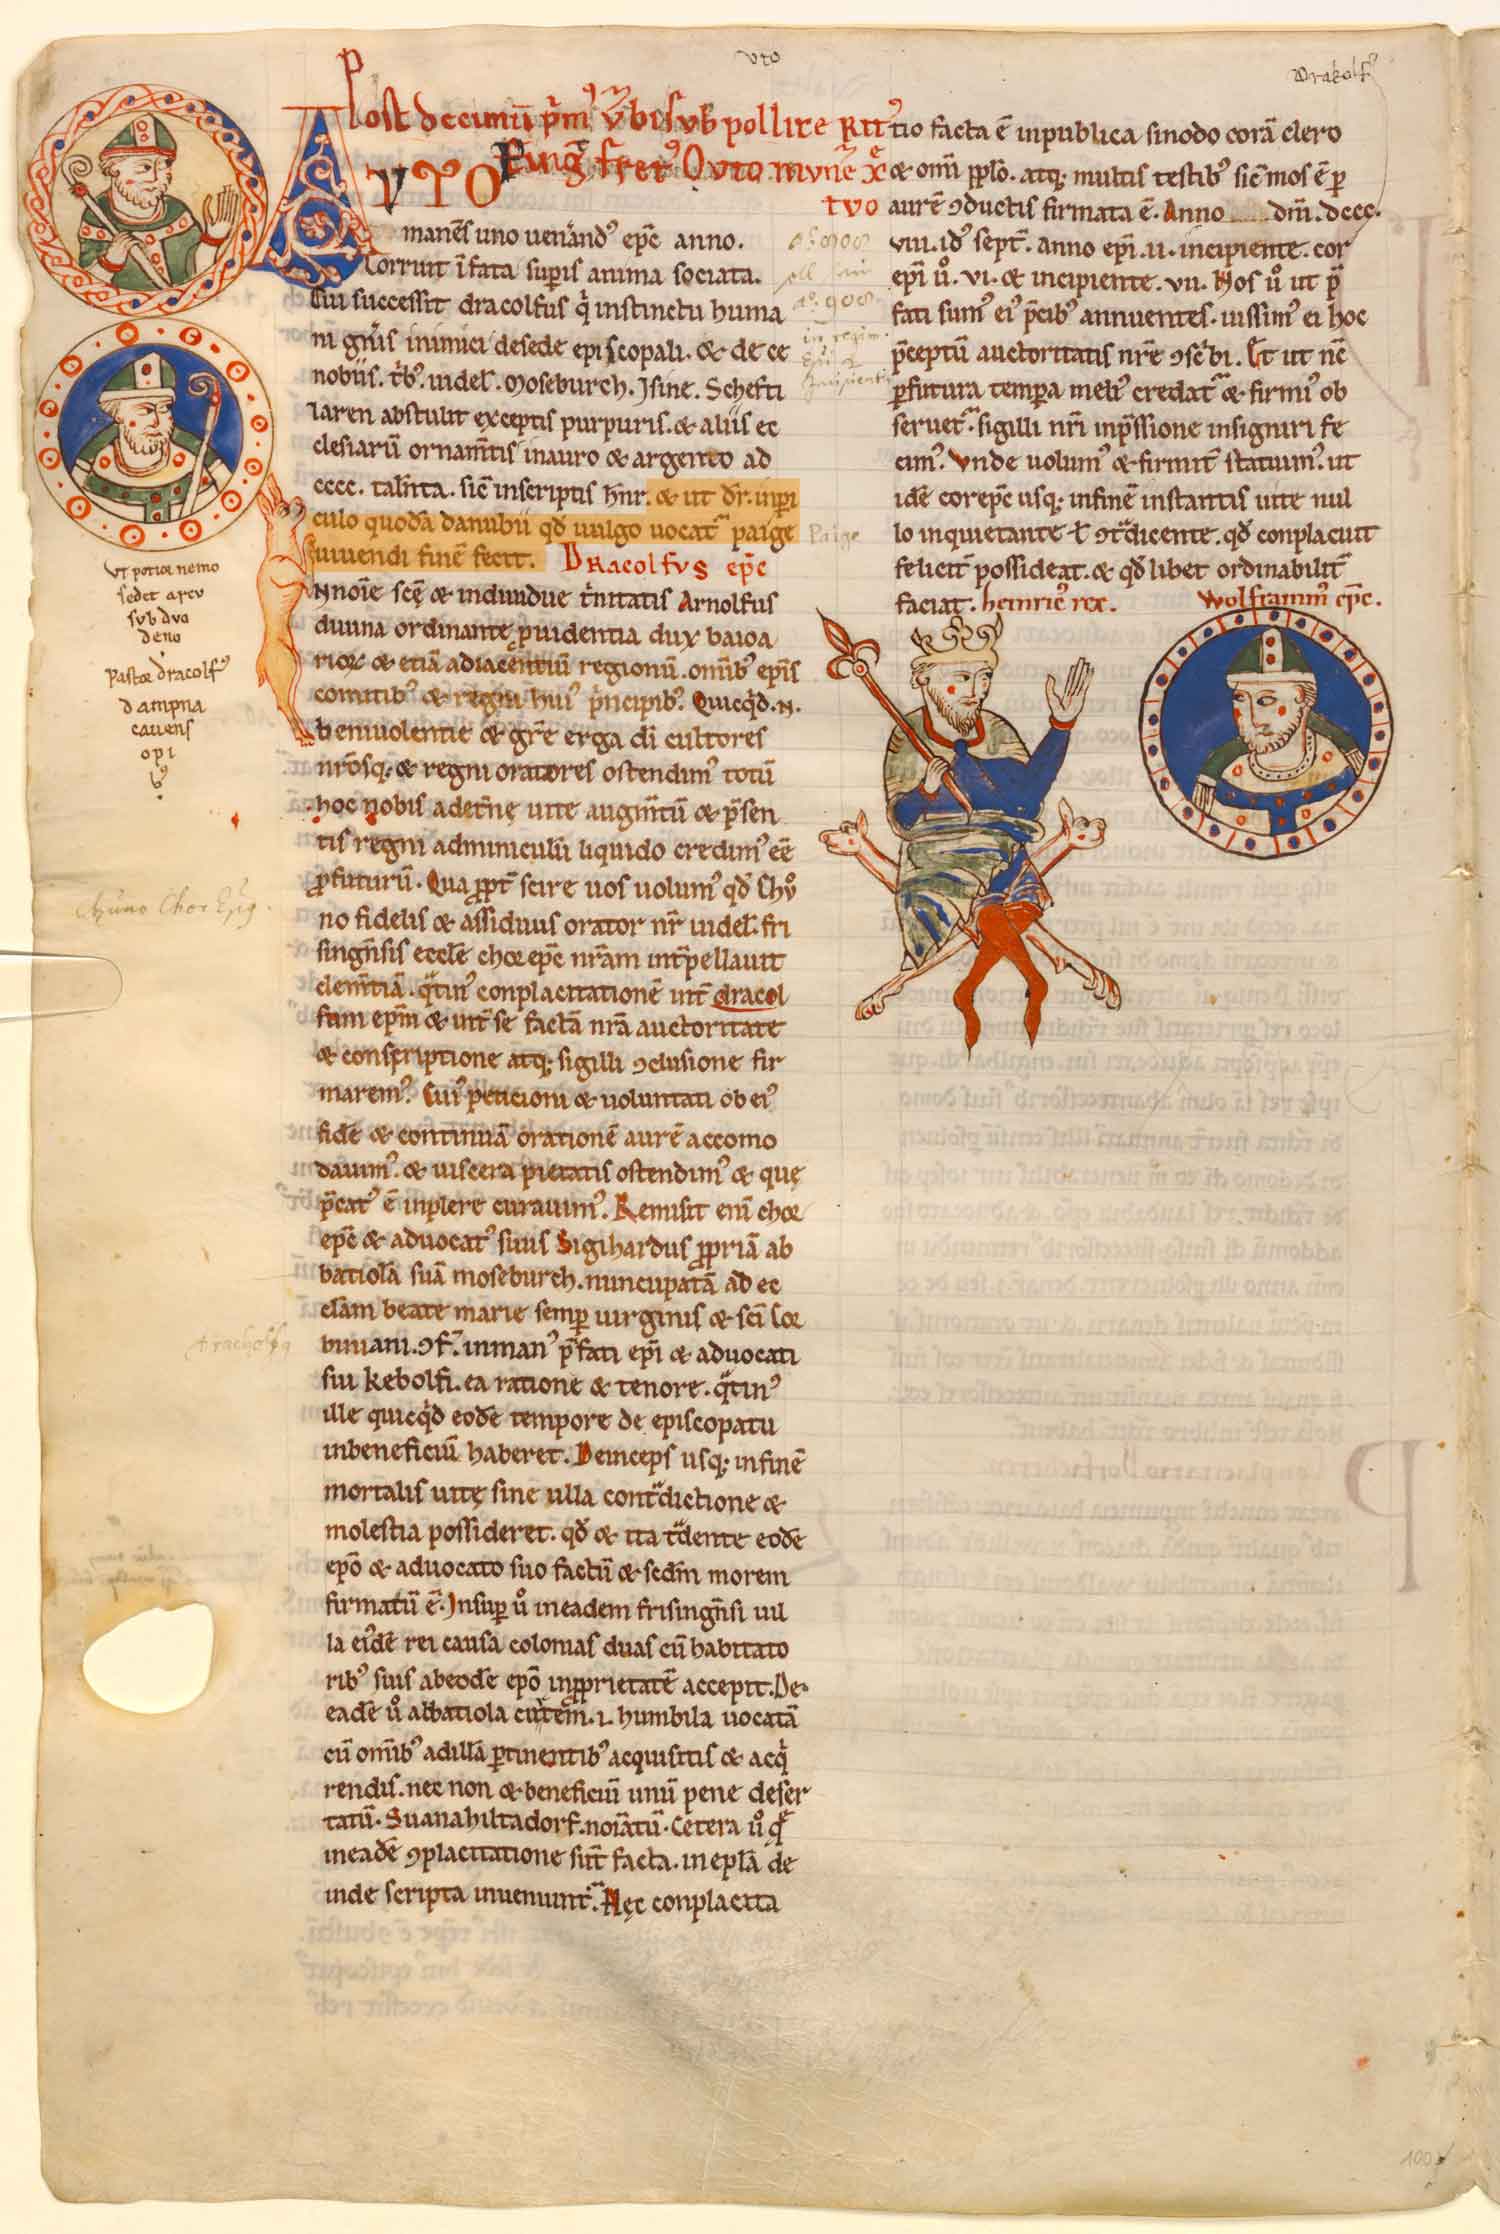 vto
Drakolf᾽
Post decimū p̄m᾽ Vrbis sub pollice
VTO Fring̃ fret᾽ Q vto mune xp̄
tuo
manens uno uenand᾽ epc̄ anno.
Corruit ī fata supis anima sociata.
Cui successit dracolfus q instinctu huma
ni gnis inimici de sede episcopali. & de ce
nobiis. trib᾽. uidel. Moseburch. Isine. Schefti
laren abstulit exceptis purpuris. & aliis ec
clesiarū ornam̄tis in auro & argento ad
cccc. talēnta. sic̄ in scriptis hr̄. & ut dr̄. in pi
culo quodā danubii qd̄ uulgo uocat᾽ paige
uiuendi finē fecit. Dracolfus epc̄
Paige
Vt potior nemo
sedet arcu
sub duo
deno
Pastor dracolf᾽
dampna
cauens
opi
b᾽
In noīe scē & indiuidue trinitatis Arnolfus
diuina ordinante puidentia dux baioa
rioꝝ & etiā adiacentiū regionū. omīb᾽ epīs
comitib᾽ & regni hui᾽ pncipib᾽. Quicqd. N.
beniuolentie & gr̄e erga dī cultores
nr̄osq; & regni oratores ostendim᾽ totū
hoc nobis ad et̄nę uite augm̄tū & psen
tis regni adminiculū liquido credim᾽ eē
pfuturū. Qua ppt̄ scire uos uolum᾽ qd̄ Chŏ
no fidelis & assiduus orator nr̄ uidel. fri
singn̄sis ecclē chorepc̄ nr̄am int̄pellauit
clem̄tiā. qtin᾽ conplacitationē int̄ dracol
fum epm̄ & int̄ se factā nr̄a auctoritate
& conscriptione atq; sigilli ↄclusione fir
marem᾽. Cui᾽ peticioni & uoluntati ob ei᾽
fidē & continuā orationē aurē accomo
dauim᾽. & uiscera pietatis ostendim᾽ & quę
pcat᾽ ē inplere curauim᾽. Remisit eni chor
epc̄ & aduocat᾽ suus Sigihardus ppriā ab
batiolā suā moseburch. nuncupatā ad ec
clam beate marie semp uirginis & scī Cor
biniani. ↄf. in man᾽ pfati epī & aduocati
sui Kebolfi. ea ratione & tenore. qtin᾽
ille quicqd eodē tempore de episcopatu
in beneficiū haberet. Deinceps usq; in finē
mortalis uitę sine ulla contdictione &
molestia possideret. qd̄ & ita tdente eodē
epō & aduocato suo factū & scdm morem
firmatū ē. Insup uo in eadem frisingn̄si uil
la eidē rei causa colonias duas cū habitato
rib᾽ suis ab eodē epō in pprietatē accepit. De
eadē uo abbatiola cutem. i. humbila uocatā
cū omīb᾽ ad illā ptinentib᾽ acquisitis & acq
rendis. nec non & beneficiū unū pene deser
tatū. Suanahiltadorf. noīatū. Cetera uo q
in eadē ↄplacitatione sūt facta. in eplā de
inde scripta inueniunt᾽. Hęc conplacita
tio facta ē in publica sinodo corā clero
& omī pplo. atq; multis testib᾽ sic̄ mos ē p
aurē ↄductis firmata ē. Anno dm̄. dccc.
viii. id᾽ sept̄. anno epī. ii. incipiente. cor
epī uo. vi. & incipiente. vii. Nos uo ut p
fati sum᾽ ei᾽ pcib᾽ annuentes. iussim᾽ ei hoc
pceptū auctoritatis nr̄e ↄscbi. Et ut nc̄
p futura tempa meli᾽ credat᾽ & firmi᾽ ob
seruet᾽. sigilli nr̄i inpssione insigniri fe
cim᾽. Vnde uolum᾽ & firmit̄ statuim᾽. ut
idē corepc̄ usq; in finē instantis uite nul
lo inquietante ł ↄtdicente. qd̄ conplacuit
felicit̄ possideat. & qd̄ libet ordinabilit̄
faciat. heinric᾽ rex. Wolframm᾽ epc̄.
Chuno Chor Epiq
100